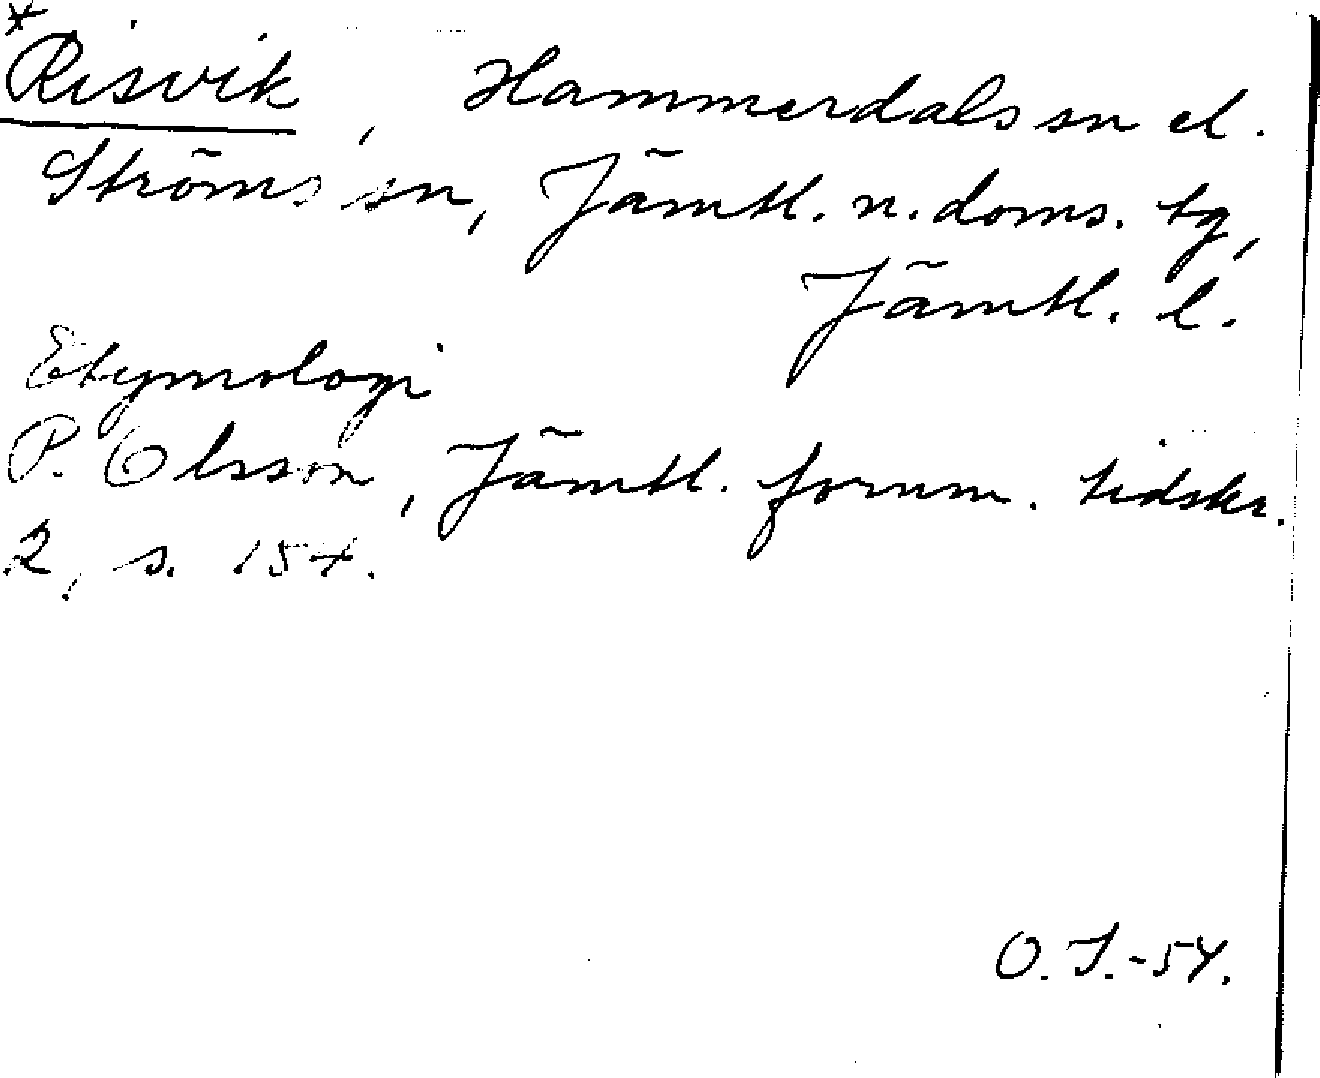 *Risvik, Hammerdals sn el.
Ströms sn, Jämtl. n. doms. tg,
Jämtl. l.
Etymologi
P. Olsson, Jämtl. fornm. tidskr.
2, s. 154.
O.J.-54.